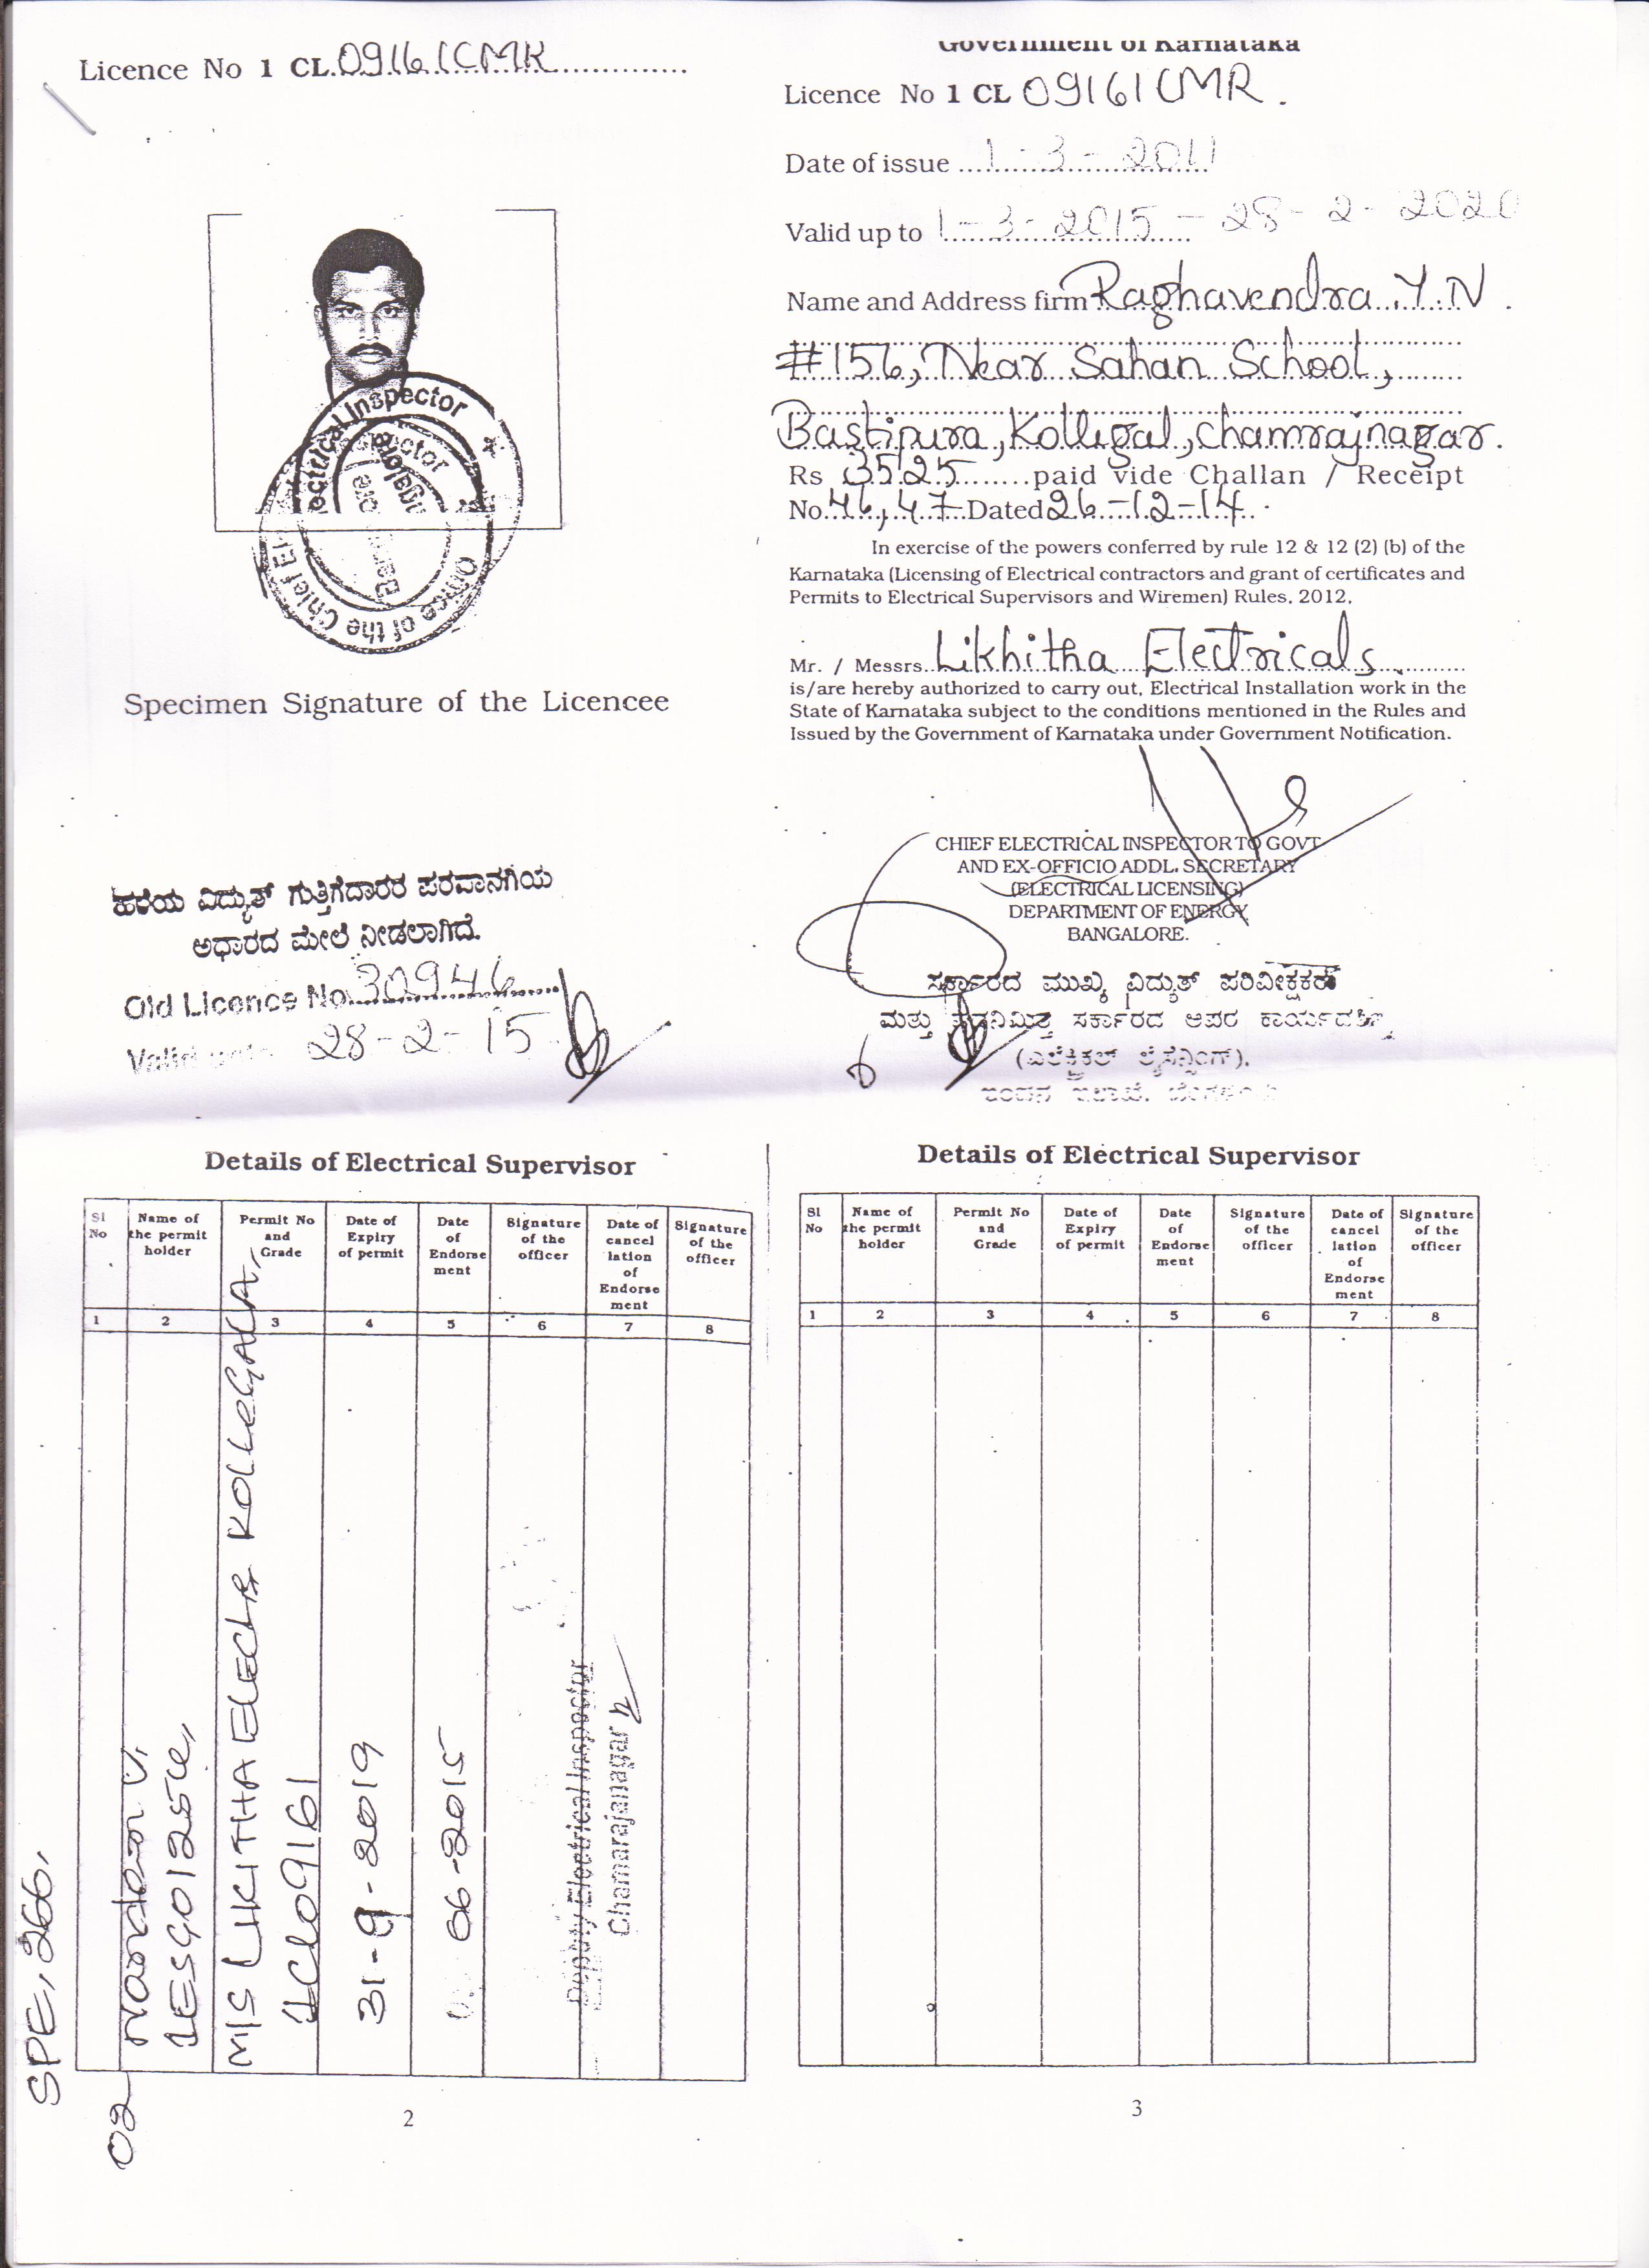 Licence No 1 CL.09161CMR
Specimen Signature of the Licencee
ಹಳೆಯ ವಿದ್ಯುತ್ ಗುತ್ತಿಗೆದಾರರ ಪರವಾನಗಿಯ
ಆಧಾರದ ಮೇಲೆ ನೀಡಲಾಗಿದೆ.
Old Licence No. 30946
Valid upto 28-2-15
Government of Karnataka
Licence No 1 CL 09161CMR.
Date of issue 1-3-2011
Valid up to 1-3-2015 - 28-2-2020
Name and Address firm Raghavendra .Y.N.
#156, Near Sahan School,
Bastipura, Kollegal, Chamrajnagar.
Rs 3525 paid vide Challan / Receipt
No. 46, 47 Dated 26-12-14
In exercise of the powers conferred by rule 12 & 12 (2) (b) of the
Karnataka (Licensing of Electrical contractors and grant of certificates and
Permits to Electrical Supervisors and Wiremen) Rules, 2012,
Mr. / Messrs. Likhitha Electricals
is/are hereby authorized to carry out, Electrical Installation work in the
State of Karnataka subject to the conditions mentioned in the Rules and
Issued by the Government of Karnataka under Government Notification.
CHIEF ELECTRICAL INSPECTOR TO GOVT
AND EX-OFFICIO ADDL. SECRETARY
(ELECTRICAL LICENSING)
DEPARTMENT OF ENERGY
BANGALORE.
ಸರ್ಕಾರದ ಮುಖ್ಯ ವಿದ್ಯುತ್ ಪರಿವೀಕ್ಷಕರು
ಮತ್ತು ಪದನಿಮಿತ್ತ ಸರ್ಕಾರದ ಅಪರ ಕಾರ್ಯದರ್ಶಿ
(ಎಲೆಕ್ಟ್ರಿಕಲ್ ಲೈಸೆನ್ಸಿಂಗ್),
ಇಂಧನ ಇಲಾಖೆ, ಬೆಂಗಳೂರು
Details of Electrical Supervisor
Sl No
Name of the permit holder
Permit No and Grade
Date of Expiry of permit
Date of Endorse ment
Signature of the officer
Date of cancel lation of Endorse ment
Signature of the officer
1 2 3 4 5 6 7 8
SPE, 266,
02
1ES90125CU,
M/S LIKITHA ELECLS KOLLEGALA,
1CL09161
31-9-2019
06-2015
Deputy Electrical Inspector
Chamarajanagar
2
Details of Electrical Supervisor
Sl No
Name of the permit holder
Permit No and Grade
Date of Expiry of permit
Date of Endorse ment
Signature of the officer
Date of cancel lation of Endorse ment
Signature of the officer
1 2 3 4 5 6 7 8
3